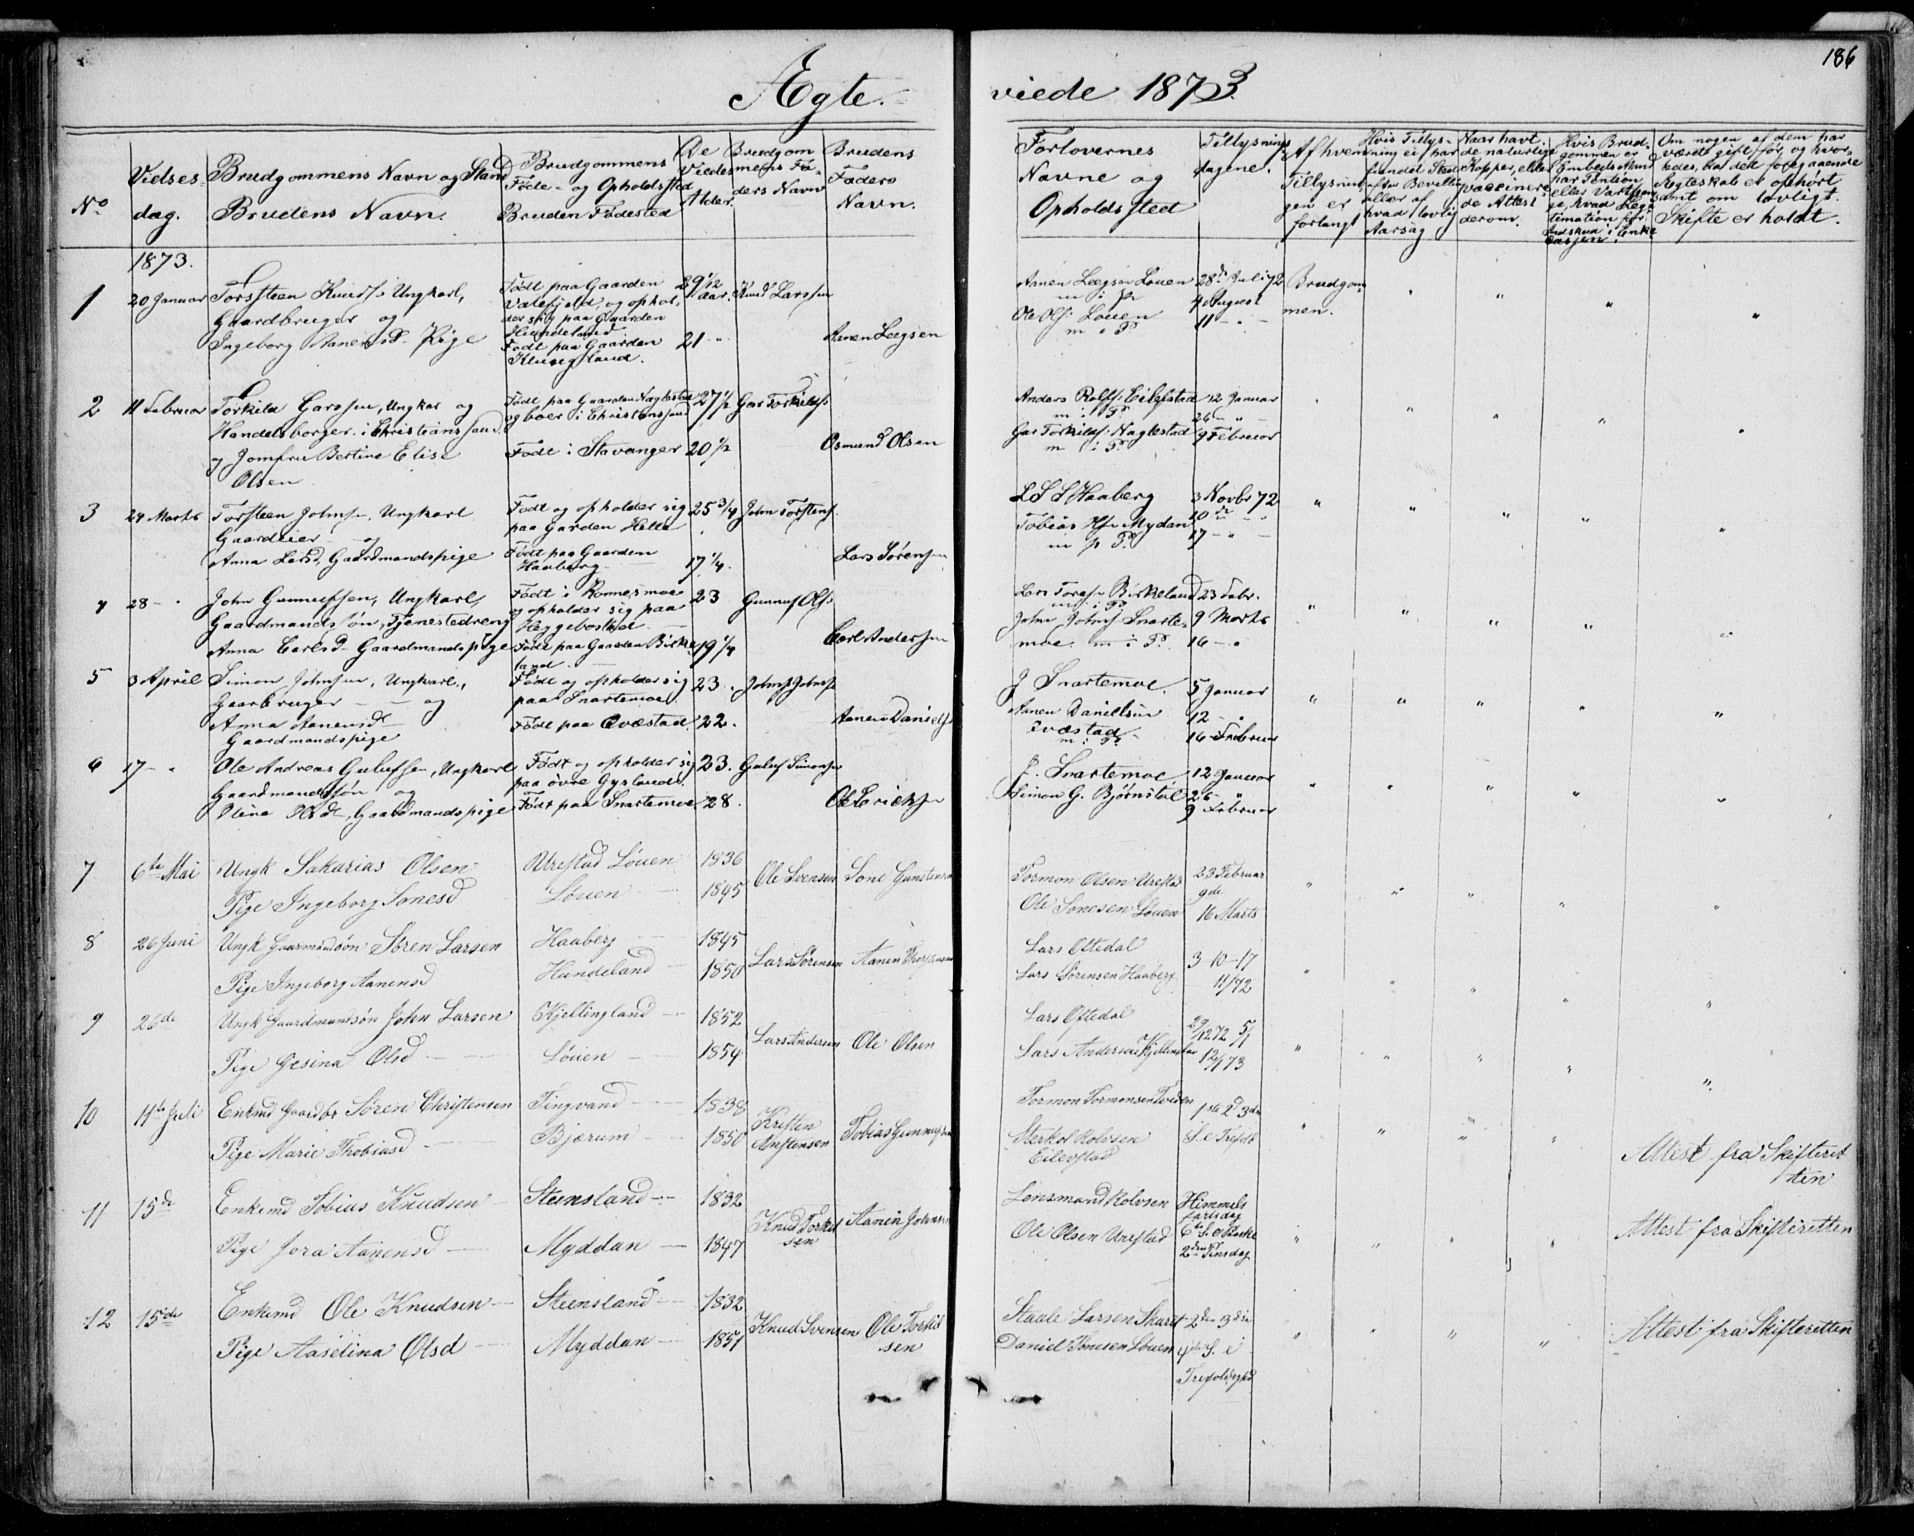 186
Ægte.
viede 1873
No
Vielses dag.
Brudgommens Navn og Stand
Brudens Navn.
Brudgommens
Føde- og Opholdsted
Bruden Fødested
De Viedes Alder.
Brudgommens Faders Navn
Brudens Faders Navn.
Forlovernes Navne og Opholdssted
Tillysningsdagene.
Af hvem Tillysningen er forlangt
Om nogen af dem har
været gift før, og hvorledes, har det foregaaende
Ægteskab er ophørt
samt om lovligt
Skifte er holdt.
1873.
1
20 Januar
Torsteen Knuds: Ungkarl,
Gaardbruger og
Ingeborg Aanensd. Pige
Født paa Gaarden
og opholder sig paa Gaarden
Hundeland.
Født paa Gaarden
29 1/2 aar.
21 "
Knud Larssen
Aanen Leegsen
Aanen Leegsen Louen
m i Pr
Ole Ols: Louen
m i Pr
28de Juli 72
4 August
11 - " -
Brudgommen.
2
11 Februar
Torkild Garssen, Ungkar og
Handelsborger i Christianssand
og Jomfru Bertine Elise
Olsen
Født paa Gaarden Nagtestad
og boer i Christianssand
Født i Stavanger
27 1/2
20 1/2
Gar Torkilds:
Osmund Olsen
Anders Rolfs: Eilefstad
m i Pr
Gar Torkilds: Nagtestad
m i Pr
12 Januar
26 - " -
9 Februar
3
24 Marts
Torsteen Johnsen, Ungkarl
Gaardeier - og
Anna Larsd, Gaardmandspige
Født og opholder sig
paa Garden Helle
Født paa Gaarden
Haaberg
25 3/4
17 1/4.
John Torstens:
Lars Sørensen
L S S Haaberg
Tobias Mydan
m p Pr
3 Novbr 72
10de - " -
17 - " -
4
28 - "
John Gunnufsen, Ungkarl,
Gaardmandssøn, Tjenestedreng
Anna Carlsd Gaardmandspige
Født i Romesmoe
og opholder sig paa
Heggebostad
Født paa Gaarden Birkeland.
23
19 1/4
Gunnuf Ols:
Carl Andersen
Lars Tores: Birkeland
m i Pr
John Johns: Snartemoe m i Pr
23 Febr.
9 Marts
16 - "
5
3 April
Simon Johnsen, Ungkarl,
Gaarbruger - og
Anna Aanensd
Gaardmandspige
Født og opholder sig
paa Snartemoe
Født paa Qvæstad
23.
22.
Johns Johns:
Aanen Daniels:
J Snartemoe.
Aanen Danielsen
Qvæstad
m i Pr
5 Januar
12 - "
16 Februar
6
17 - "
Ole Andreas Gulufsen, Ungkarl
Gaardmandssøn og
Olene Olsd, Gaardmandspige
Født og opholder sig
paa øvre Gysland.
Født paa Snartemoe
23.
28.
Guluf Simonsen
Ole Ericksen
J. Snartemoe,
Simon G. Bjørnstøl
12 Januar
26 - "
9 Februar
7
6te Mai
Ungk Sakarias Olsen
Pige Ingeborg Sonesd
Urestad Løuen
Løuen
1836
1845
Ole Svensen
Sone Gunstensen
Tormon Olsen Urestad
Ole Sonesen Løuen
23 Februar
9de
16 Marts
8
26 Juni
Ungk Gaarmandsøn Søren Larsen
Pige Ingeborg Aanensd
Haaberg
Hundeland
1845
1850
Lars Sørensen
Aanen Thorstensen
Lars Oftedal
Lars Sørensen Haaberg
3-10-17
11/72
9
26de
Ungk Gaardmandsøn John Larsen
Pige Gesina Olsd
Kjellingland
Løuen
1852
1854
Lars Andersen
Ole Olsen
Lars Oftedal
Lars Andersen Kjellingland
29/12 72 5/1
12/1 73
10
14de Juli
Enkmd Gaardbr Søren Christensen
Pige Marie Thobiasd
Tingvand
Bjærum
1838
1850
Kristen Anstensen
Tobias Gunnufsen
Tormon Tormonsen Tveden
Sterkol Rolvsen
Eilevstad
1ste 2d 3die
S. e Trefoldt
Attest fra Skifteretten
11
15de
Enkemd Tobias Knudsen
Pige Jora Aanensd
Steensland
Myddan
1832
1847
Knud Torkelsen
Aanen Johnsen
Lensmand Rolvsen
Ole Olsen Urestad
Himmelfartsdag
6te S. e Paaske
2den Pinsdag
Attest fra Skifteretten
12
15de
Enkemd Ole Knudsen
Pige Aaselina Olsd
Steensland
Myddan
1832
1851
Knud Svensen
Ole Torkilsen
Staale Larsen Skaret
Daniel Tønesen Løuen
2den 3die
4de S. e
Trefoldighd
Attest fra Skifteretten